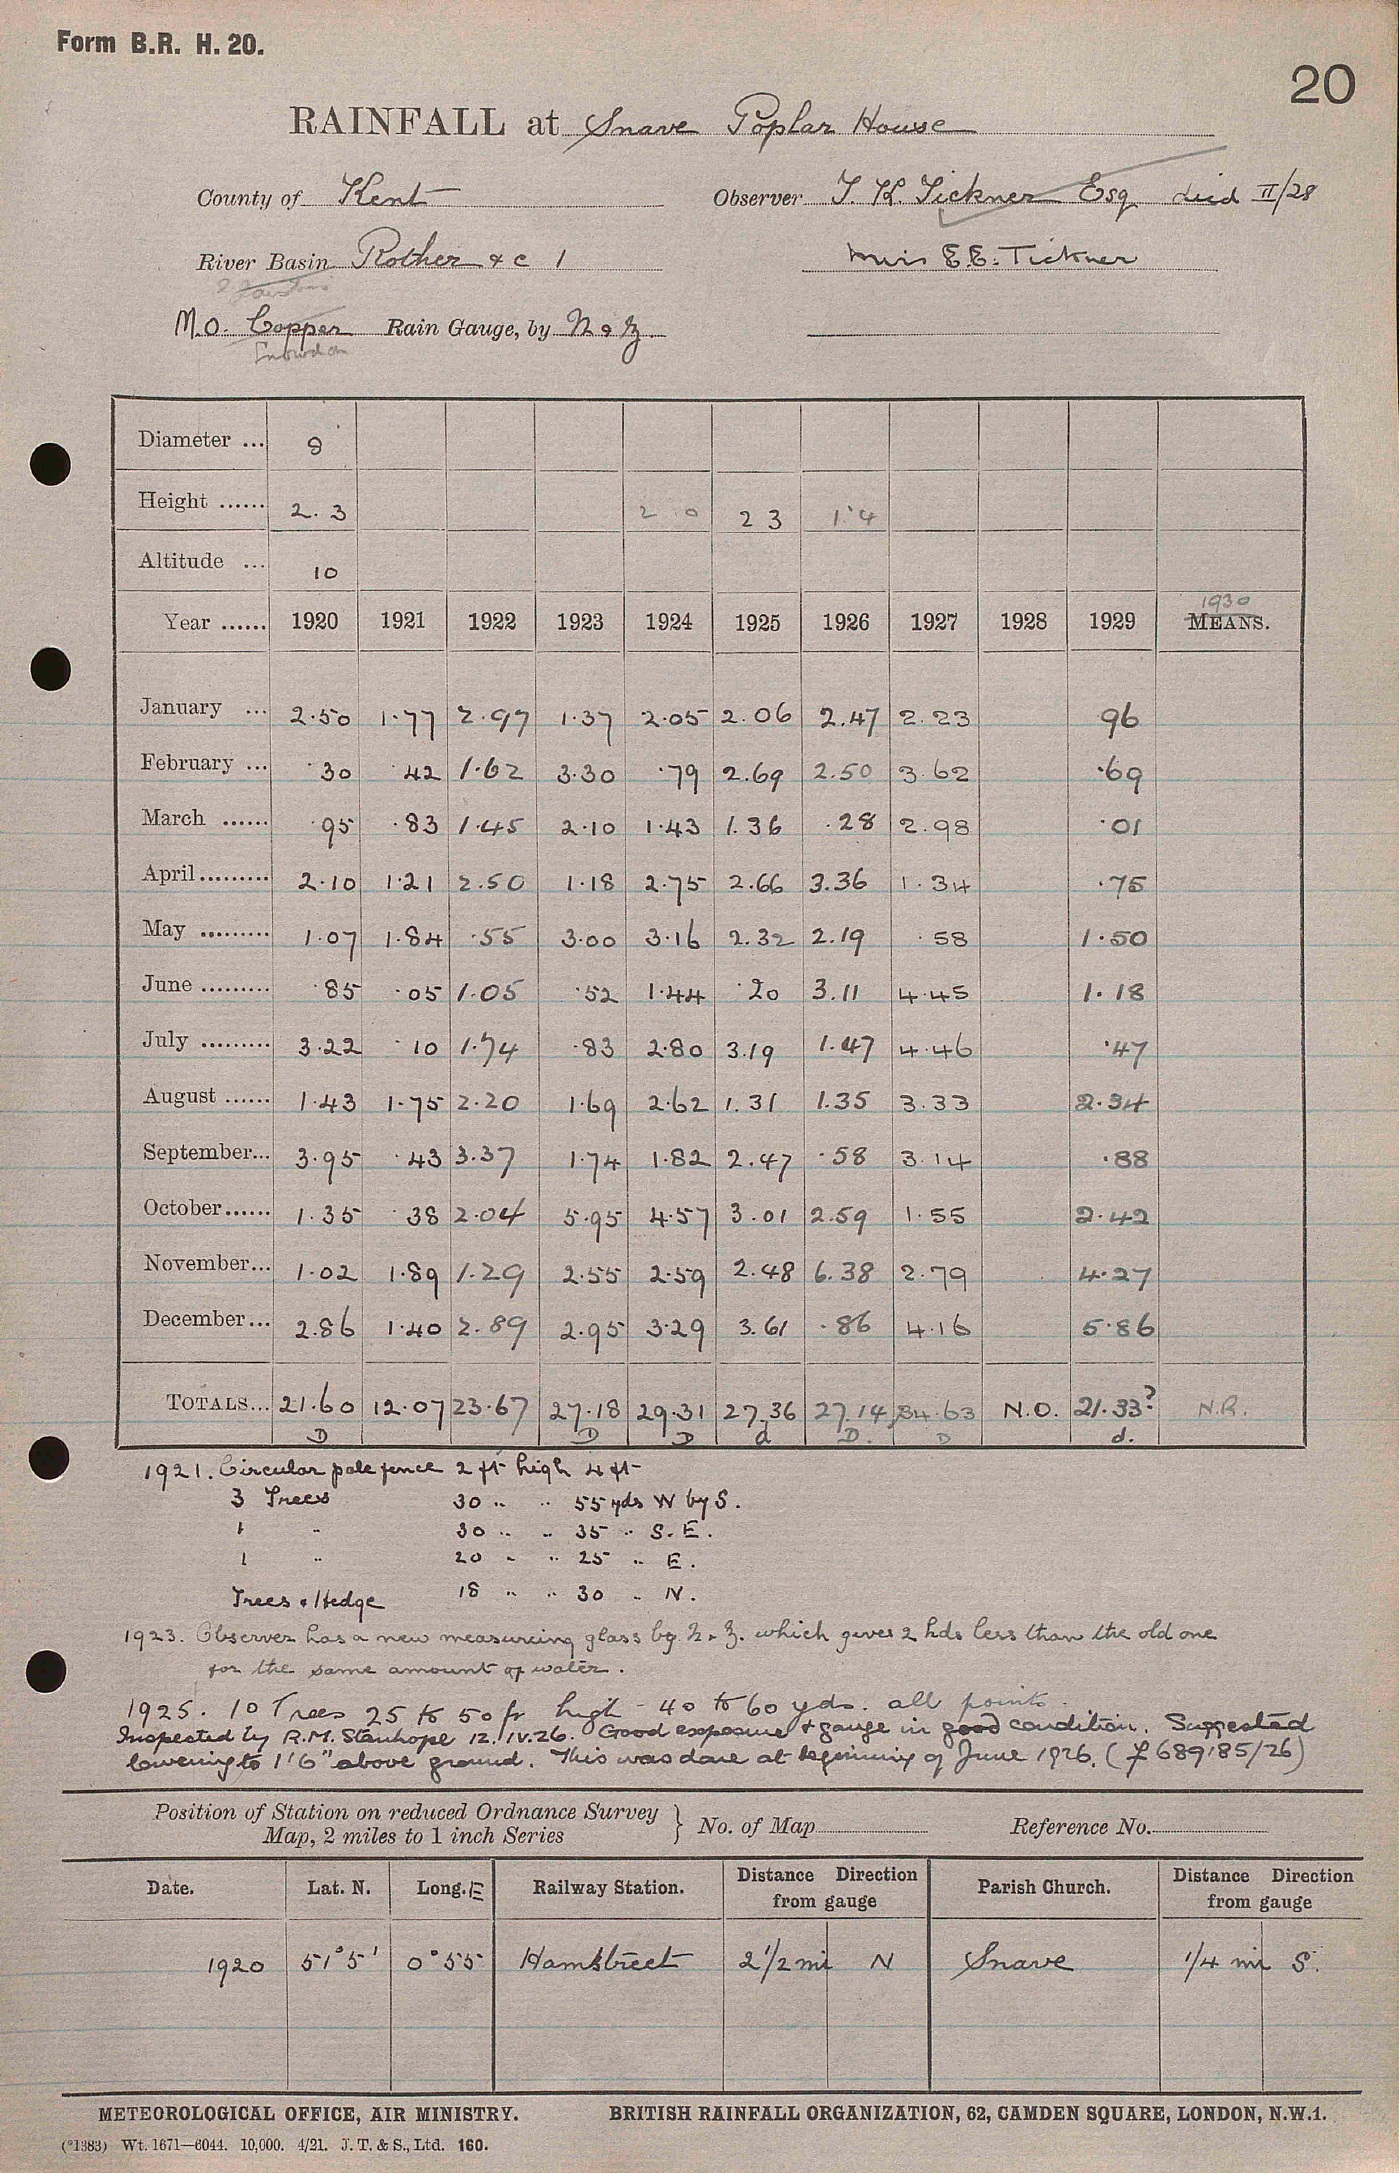 Form B.R. H. 20.
20
RAINFALL at Snave Poplar House
County of Kent Observer T. K. Tickner Esq died II/28
River Basin Rother & c 1 Miss E.E. Tickner
M.O. Copper Rain Gauge, by N & Z.
Snowdon
Diameter ... 8
Height ...... 2.3 2 0 2 3 1'4
Altitude ... 10
1930
Year ...... 1920 1921 1922 1923 1924 1925 1926 1927 1928 1929 MEANS.
January ... 2.50 1.77 2.97 1.37 2.05 2.06 2.47 2.23 96
February ... .30 .42 1.62 3.30 .79 2.69 2.50 3.62 .69
March ...... .95 .83 1.45 2.10 1.43 1.36 .28 2.98 .01
April......... 2.10 1.21 2.50 1.18 2.75 2.66 3.36 1.34 .75
May ......... 1.07 1.84 .55 3.00 3.16 2.32 2.19 .58 1.50
June ......... .85 .05 1.05 .52 1.44 .20 3.11 4.45 1.18
July ......... 3.22 .10 1.74 .83 2.80 3.19 1.47 4.46 .47
August ...... 1.43 1.75 2.20 1.69 2.62 1.31 1.35 3.33 2.34
September... 3.95 .43 3.37 1.74 1.82 2.47 .58 3.14 .88
October...... 1.35 .38 2.04 5.95 4.57 3.01 2.59 1.55 2.42
November... 1.02 1.89 1.29 2.55 2.59 2.48 6.38 2.79 4.27
December... 2.86 1.40 2.89 2.95 3.29 3.61 .86 4.16 5.86
TOTALS... 21.60 12.07 23.67 27.18 29.31 27.36 27.14 34.63 N.O. 21.33? N.R.
D D D d D. D d.
1921. Circular pale fence 2 ft high 4 ft
3 Trees 30 " " 55 yds W by S.
1 " 30 " " 35 " S.E.
1 " 20 " " 25 " E.
Trees & Hedge 18 " " 30 " N.
1923. Observer has a new measuring glass by N. & Z. which gives 2 hds less than the old one
for the same amount of water.
1925. 10 Trees 25 to 50 ft high - 40 to 60 yds. all points.
Inspected by R.M. Stanhope 12.IV.26. Good exposure & gauge in good condition. Suggested
lowering to 1'6" above ground. This was done at beginning of June 1926. (f 689185/26)
Position of Station on reduced Ordnance Survey
Map, 2 miles to 1 inch Series } No. of Map Reference No.
Date. Lat. N. Long. E Railway Station. Distance Direction from gauge Parish Church. Distance Direction from gauge
1920 51°5' 0°55 Hamstreet 2 1/2 mi N Snave 1/4 mi S.
METEOROLOGICAL OFFICE, AIR MINISTRY. BRITISH RAINFALL ORGANIZATION, 62, CAMDEN SQUARE, LONDON, N.W.1.
(*1383) Wt. 1671—6044. 10,000. 4/21. J. T. & S., Ltd. 160.